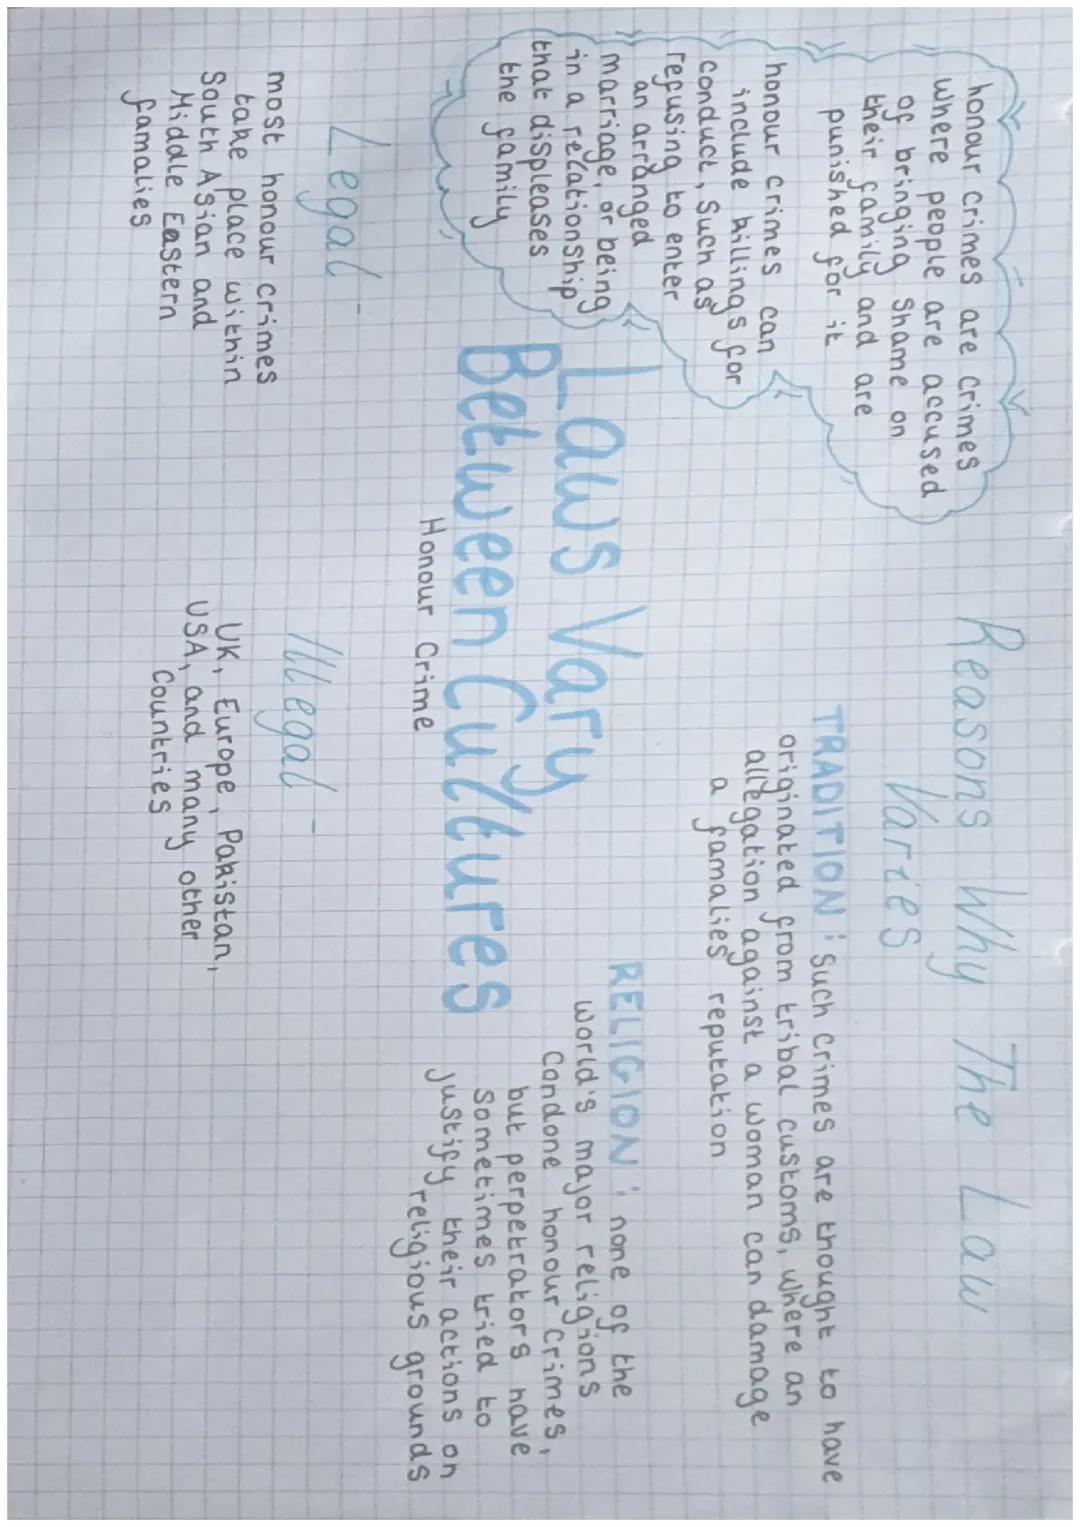 honour crimes are crimes
where people are accused
of bringing shame on
their family and are
punished for it
honour crimes can
include killings for
conduct, such as
refusing to enter
an arranged
marriage, or being
in a relationship
that displeases
the family
Reasons Why The Law
Varies
TRADITION: such crimes are thought to have
originated from tribal customs, where an
allegation against a woman can damage
a famalies reputation
RELIGION: none of the
world's major religions
condone honour crimes,
but perpetrators have
sometimes tried to
justify their actions on
religious grounds
Laws Vary
Between Cultures
Honour Crime
Legal -
most honour crimes
take place within
South Asian and
Middle Eastern
famalies
Illegal -
UK, Europe, Pakistan,
USA, and many other
Countries